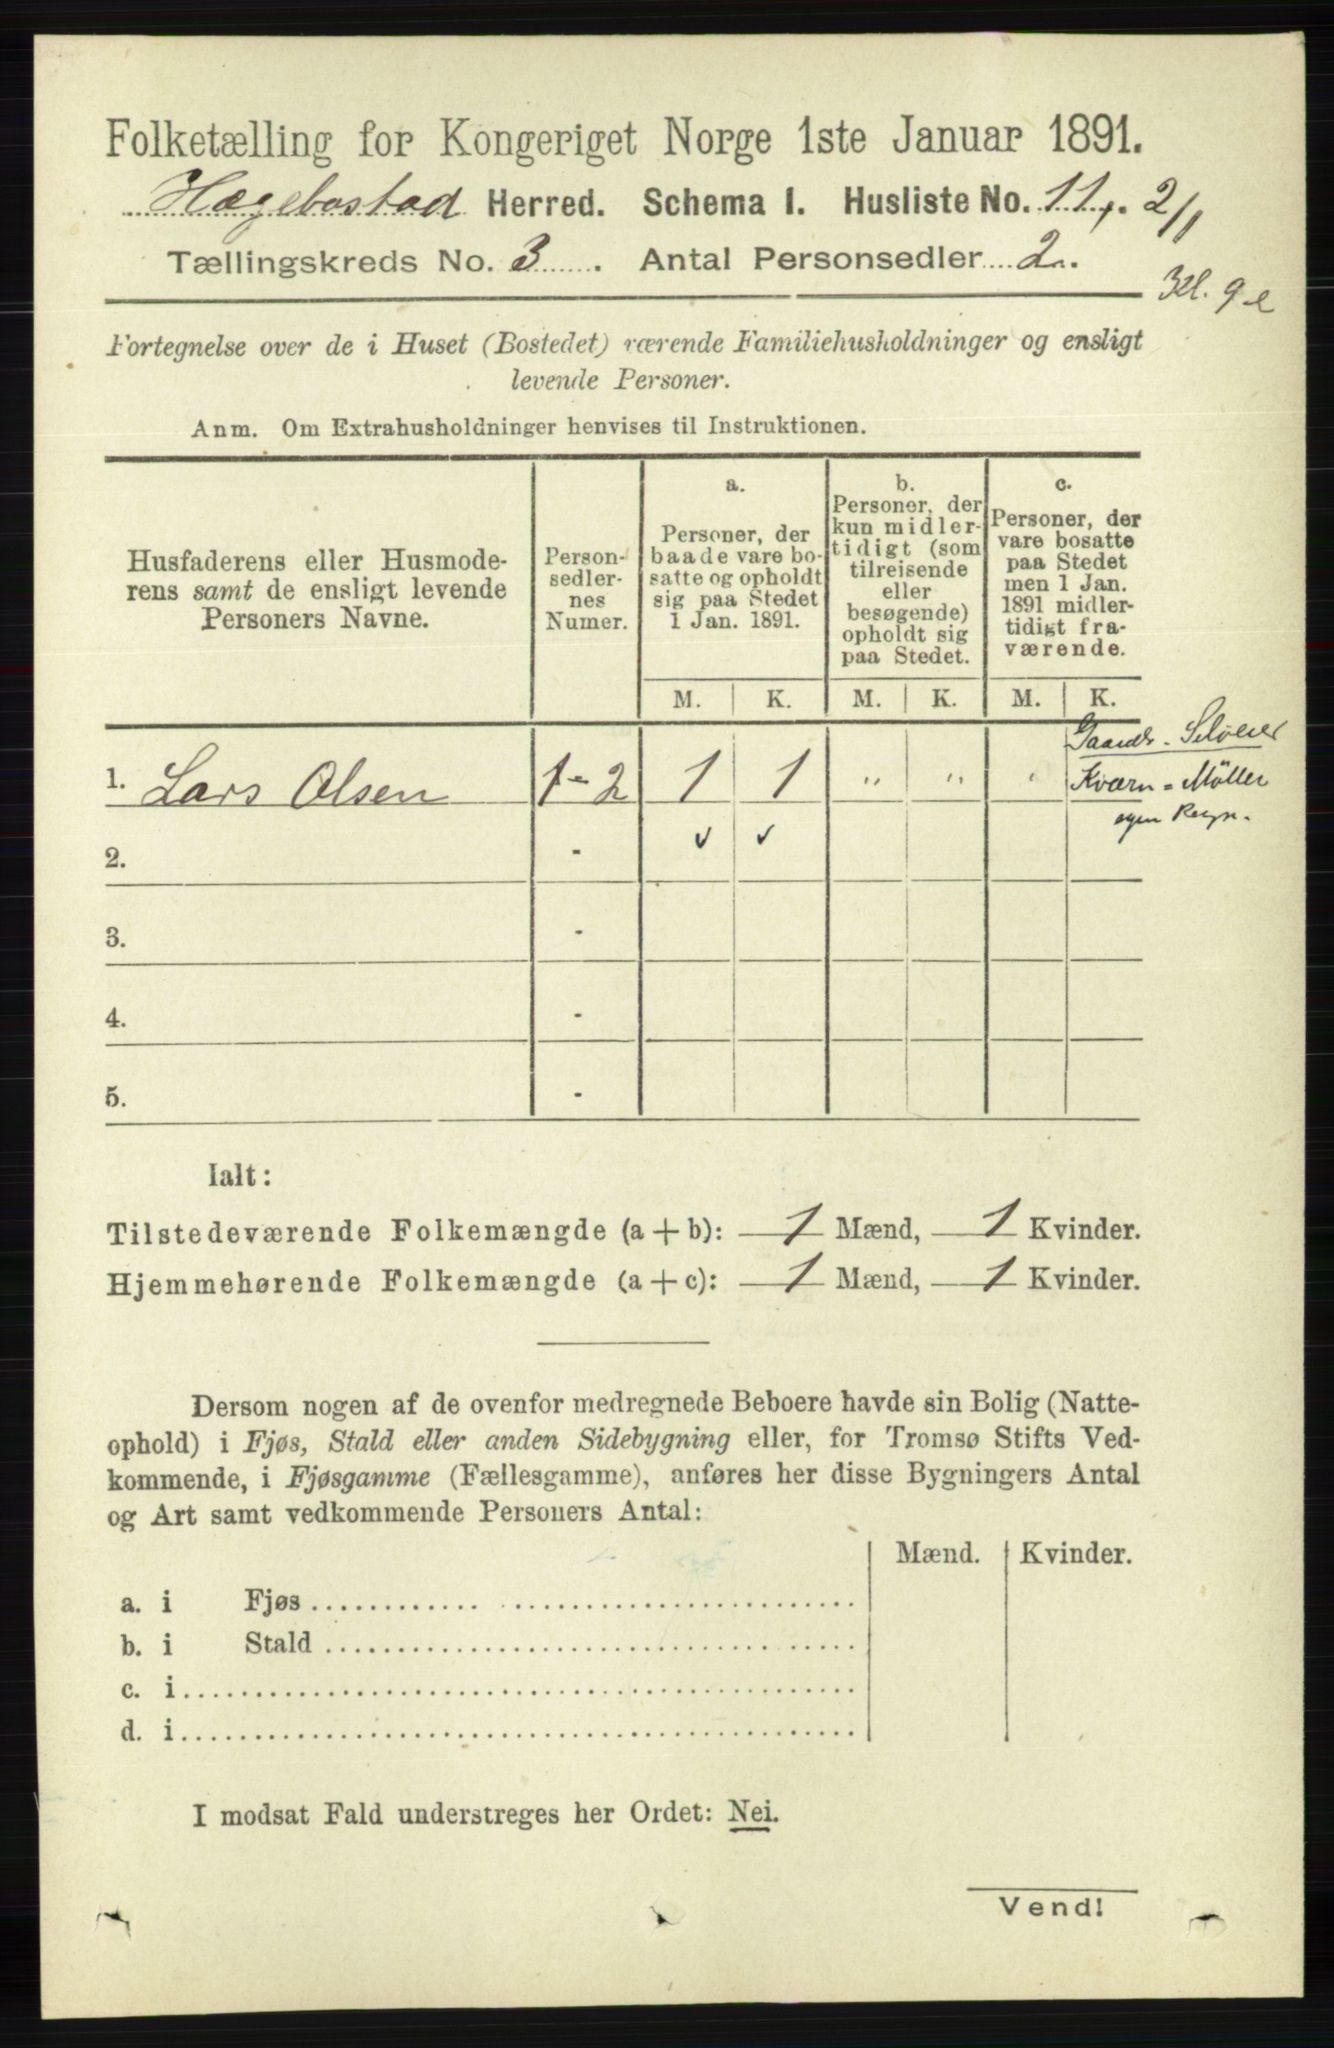 Folketælling for Kongeriget Norge 1ste Januar 1891.
Hægebostad Herred. Schema I. Husliste No. 11. 2/1
Tællingskreds No. 3. Antal Personsedler 2.
Fortegnelse over de i Huset (Bostedet) værende Familiehusholdninger og ensligt
levende Personer.
Anm. Om Extrahusholdninger henvises til Instruktionen.
Husfaderens eller Husmode-
rens samt de ensligt levende
Personers Navne.
Person-
sedler-
nes
Numer.
a.
Personer, der
baade vare bo-
satte og opholdt
sig paa Stedet
1 Jan. 1891.
b.
Personer, der
kun midler-
tidigt (som
tilreisende
eller
besøgende)
opholdt sig
paa Stedet.
c.
Personer, der
vare bosatte
paa Stedet
men 1 Jan.
1891 midler-
tidigt fra-
værende.
M. K. M. K. M. K.
Gaardb. - Selveier
1. Lars Olsen 1 - 2 1 1 " " " Kværn = Møller
egen Regn.
2. - ✓ ✓
3. -
4. -
5. -
Ialt:
Tilstedeværende Folkemængde (a + b): 1 Mænd, 1 Kvinder.
Hjemmehørende Folkemængde (a + c): 1 Mænd, 1 Kvinder.
Dersom nogen af de ovenfor medregnede Beboere havde sin Bolig (Natte-
ophold) i Fjøs, Stald eller anden Sidebygning eller, for Tromsø Stifts Ved-
kommende, i Fjøsgamme (Fællesgamme), anføres her disse Bygningers Antal
og Art samt vedkommende Personers Antal:
Mænd. Kvinder.
a. i Fjøs
b. i Stald
c. i
d. i
I modsat Fald understreges her Ordet: Nei.
Vend!